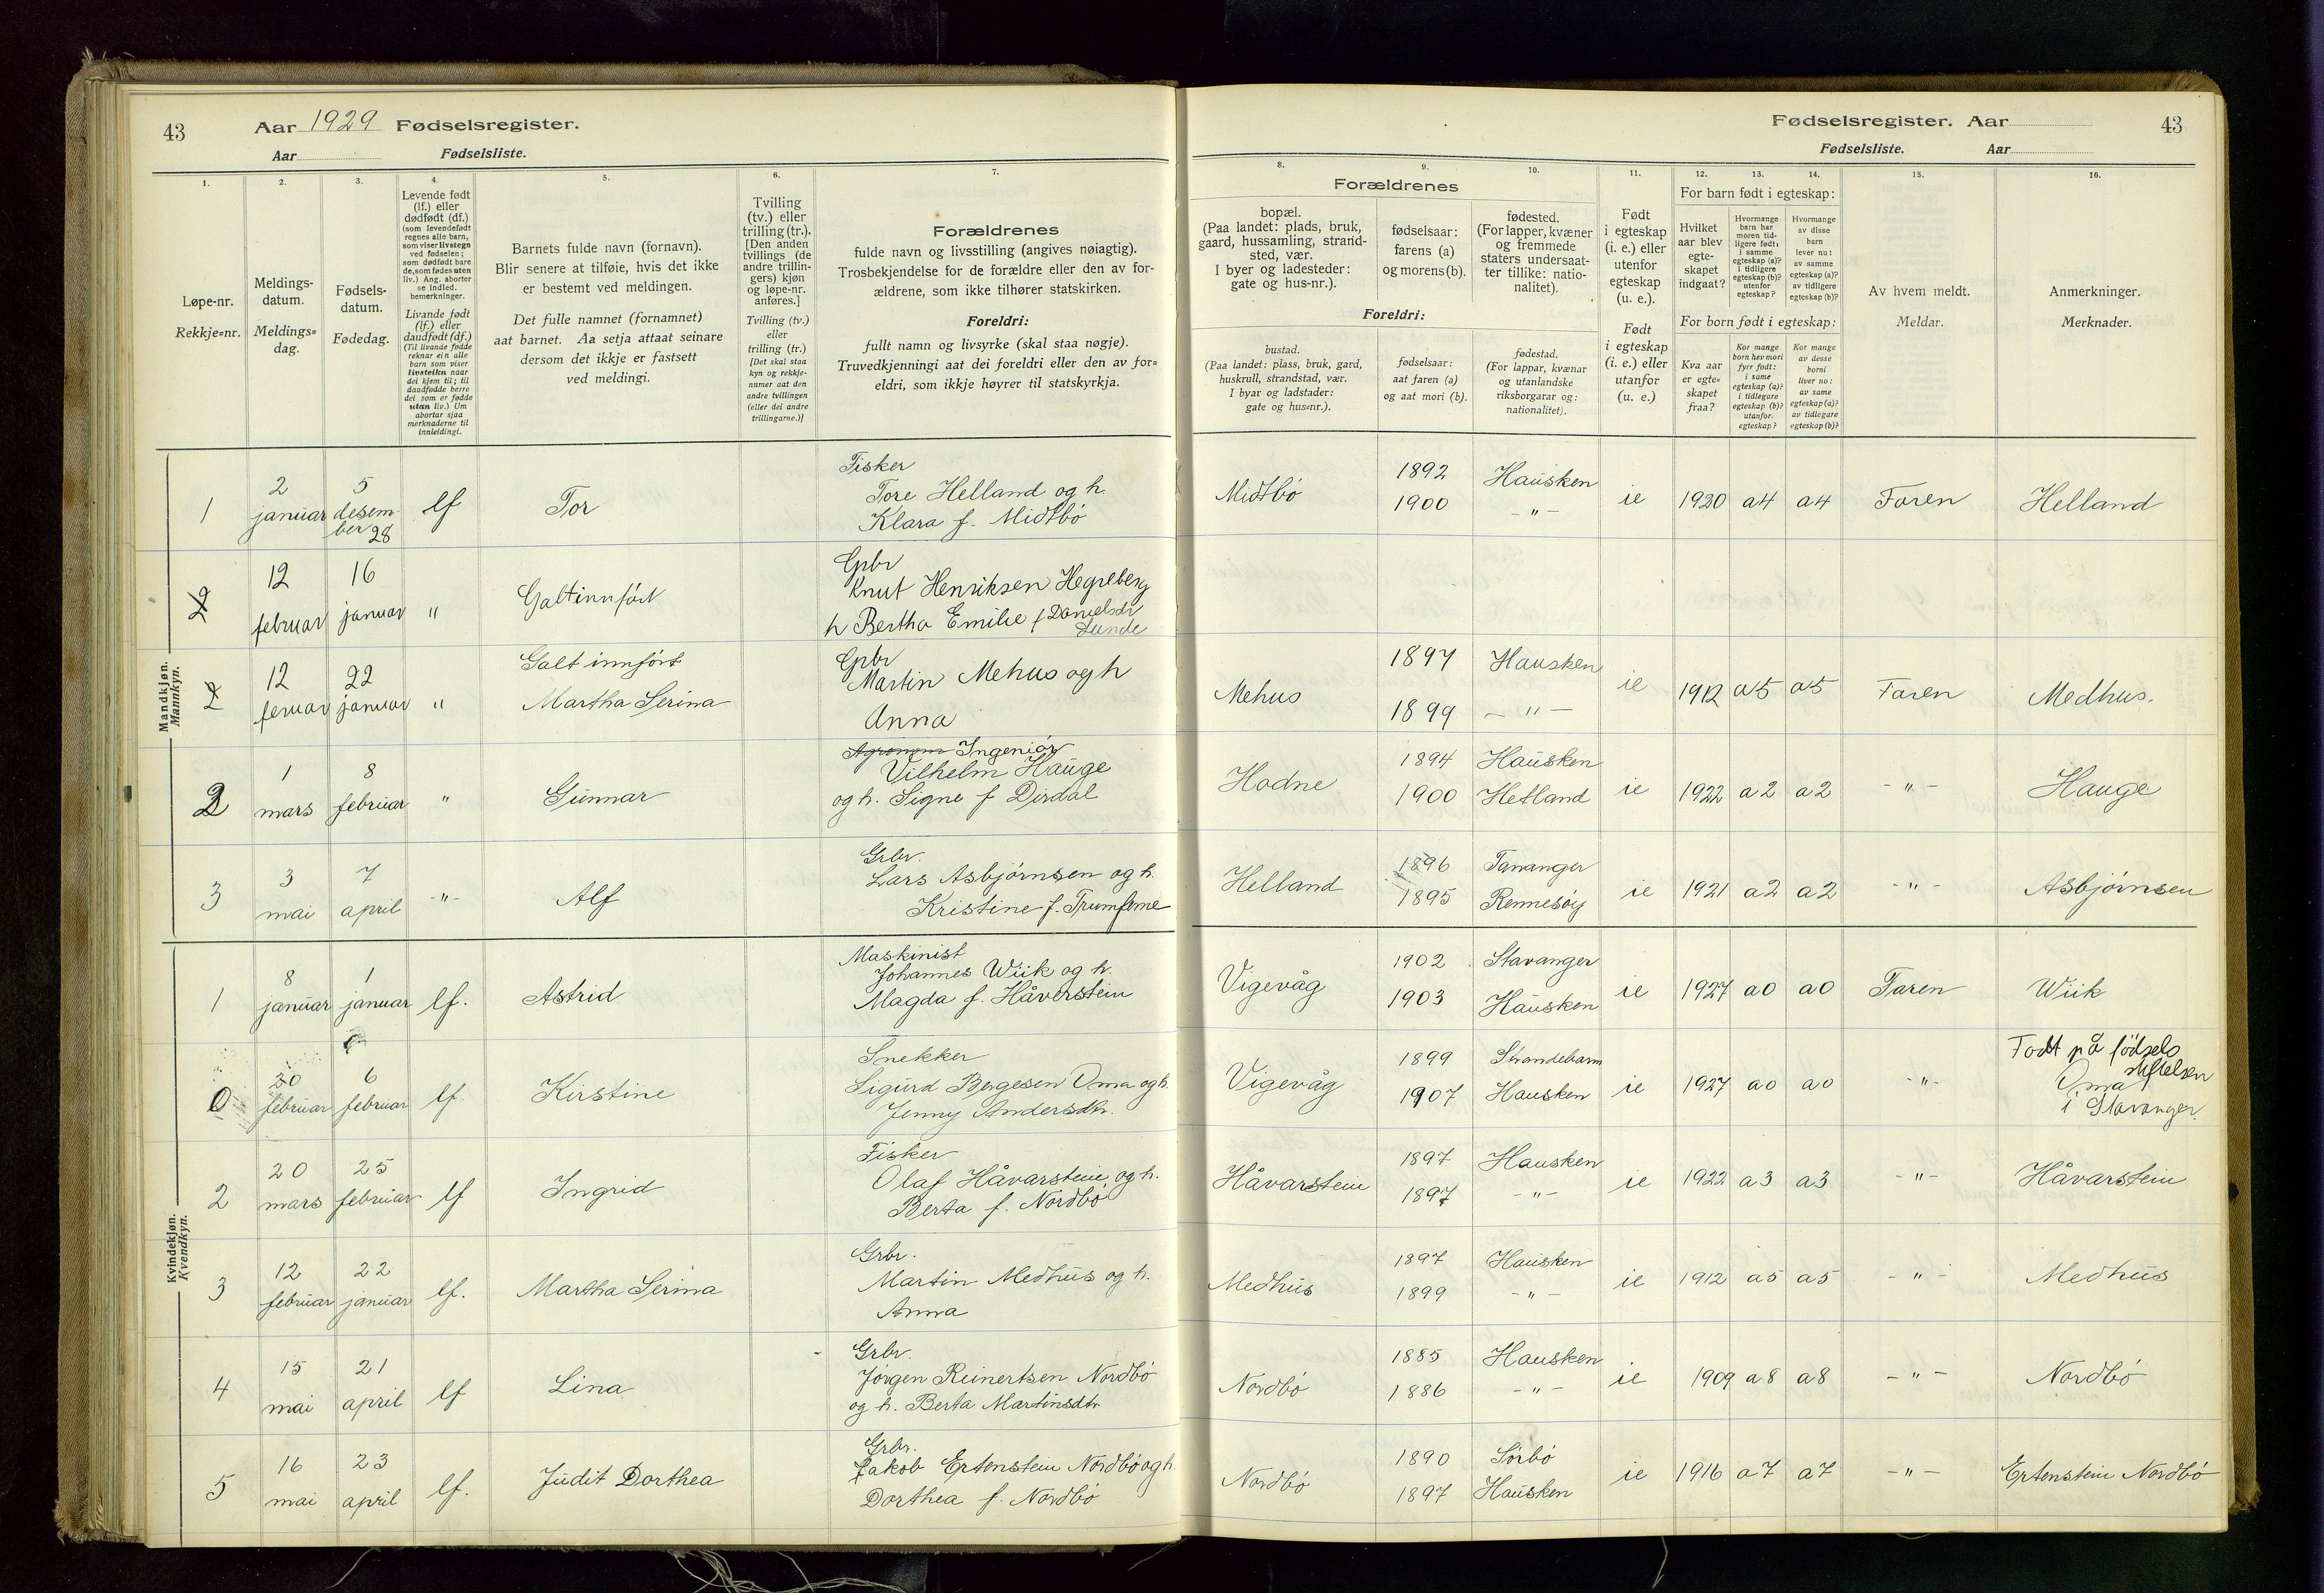 43
Aar 1929 Fødselsregister.
Aar Fødselsliste.
1.
2.
3.
4.
5.
6.
7.
Løpe-nr.
Rekkje=nr.
Meldings-
datum.
Meldings=
dag.
Fødsels-
datum.
Fødedag.
Levende født
(lf.) eller
dødfødt (df.)
(som levendefødt
regnes alle barn,
som viser livstegn
ved fødselen;
som dødfødt bare
de, som fødes uten
liv.) Ang. aborter
se indled.
bemerkninger.
Livande født
(lf.) eller
daudfødt (df.)
(Til livande fødde
reknar ein alle
barn som viser
livsteikn naar
dei kjem til; til
daudfødde berre
dei som er fødde
utan liv.) Um
abortar sjaa
merknaderne til
innleidingi.
Barnets fulde navn (fornavn).
Blir senere at tilføie, hvis det ikke
er bestemt ved meldingen.
Det fulle namnet (fornamnet)
aat barnet. Aa setja attaat seinare
dersom det ikkje er fastsett
ved meldingi.
Tvilling
(tv.) eller
trilling (tr.).
[Den anden
tvillings (de
andre trillin-
gers) kjøn
og løpe-nr.
anføres.]
Tvilling (tv.)
eller
trilling (tr.)
[Det skal staa
kyn og rekkje-
numer aat den
andre tvillingen
(eller dei andre
trillingarne.)]
Forældrenes
fulde navn og livsstilling (angives nøiagtig).
Trosbekjendelse for de forældre eller den av for-
ældrene, som ikke tilhører statskirken.
Foreldri:
fullt namn og livsyrke (skal staa nøgje).
Truvedkjenningi aat dei foreldri eller den av for=
eldri, som ikkje høyrer til statskyrkja.
Fødselsregister. Aar
43
Fødselsliste. Aar
8.
9.
10.
11.
12.
13.
14.
15.
16.
Forældrenes
bopæl.
(Paa landet: plads, bruk,
gaard, hussamling, strand-
sted, vær.
I byer og ladesteder:
gate og hus-nr.).
fødselsaar:
farens (a)
og morens (b).
fødested.
(For lapper, kvæner
og fremmede
staters undersaat-
ter tillike: natio-
nalitet).
Foreldri:
bustad.
(Paa landet: plass, bruk, gard,
huskrull, strandstad, vær.
I byar og ladstader:
gate og hus=nr.).
fødselsaar:
aat faren (a)
og aat mori (b).
fødestad.
(For lappar, kvænar
og utanlandske
riksborgarar og:
nationalitet).
Født
i egteskap
(i. e.) eller
utenfor
egteskap
(u. e.).
Født
i egteskap
(i. e.) eller
utanfor
(u. e.)
For barn født i egteskap:
Hvilket
aar blev
egte-
skapet
indgaat?
Hvormange
barn har
moren tid-
ligere født:
i samme
egteskap (a)?
i tidligere
egteskap (b)?
utenfor
egteskap?
Hvormange
av disse
barn
lever nu:
av samme
egteskap (a)?
av tidligere
egteskap (b)?
For born født i egteskap:
Kva aar
er egte=
skapet
fraa?
Kor mange
born hev mori
fyrr født:
i same
egteskap (a)?
i tidlegare
egteskap (b)?
utanfor
egteskap?
Kor mange
av desse
borni
liver no:
av same
egteskap (a)?
av tidlegare
egteskap (b)?
Av hvem meldt.
Meldar.
Anmerkninger.
Merknader.
Mandkjøn.
Mannkyn.
1 2 januar 5 desem- ber 28 lf Tor
Fisker
Tore Helland og h.
Klara f. Midtbö
Midtbö 1892 1900 Hausken -"- ie 1920 a4 a4 Faren Helland
2 12 februar 16 januar " Galt innfört
Gpbr
Knut Henriksen Hegreberg
h Bertha Emilie f Danielsdr
Lunde
2 12 feruar 22 januar " Galt innfört
Martha Serina
Gpbr
Martin Mehus og h
Anna
Mehus 1897 1899 Hausken -"- ie 1912 a5 a5 Faren Medhus.
2 1 mars 8 februar " Gunnar
Agronom Ingeniör
Vilhelm Hauge
og h. Signe f Dirdal
Hodne 1894 1900 Hausken Hetland ie 1922 a2 a2 -"- Hauge
3 3 mai 7 april -"- Alf
Grbr.
Lars Asbjörnsen og h.
Kristine f. Trumfeme
Helland 1896 1895 Tananger Rennesöy ie 1921 a2 a2 -"- Asbjörnsen
Kvindekjøn.
Kvendkyn.
1 8 januar 1 januar lf. Astrid
Maskinist
Johannes Wiik og h.
Magda f. Håverstein
Vigevåg 1902 1903 Stavanger Hausken ie 1927 a0 a0 Faren Wiik
0 20 februar 6 februar lf. Kirstine
Snekker
Sigurd Børgesen Oma og h.
Jenny Andersdtr.
Vigevåg 1899 1907 Strandebarm Hausken ie 1927 a0 a0 -"-
Födt på födsels
stiftelsen
Oma
i Stavanger.
2 20 mars 25 februar lf Ingrid
Fisker
Olaf Håvarstein og h.
Berta f. Nordbö
Håvarstein 1897 1897 Hausken -"- ie 1922 a3 a3 -"- Håvarstein
3 12 februar 22 januar lf. Martha Serina
Grbr.
Martin Medhus og h.
Anna
Medhus 1897 1899 Hausken -"- ie 1912 a5 a5 -"- Medhus
4 15 mai 21 april lf Lina
Grbr.
Jörgen Reinertsen Nordbö
og h. Berta Martinsdtr
Nordbö 1885 1886 Hausken -"- ie 1909 a8 a8 -"- Nordbö
5 16 mai 23 april lf. Judit Dorthea
Grbr.
Jakob Ertenstein Nordbö og h.
Dorthea f. Nordbö
Nordbö 1890 1897 Sörbö Hausken ie 1916 a7 a7 -"- Ertenstein Nordbö